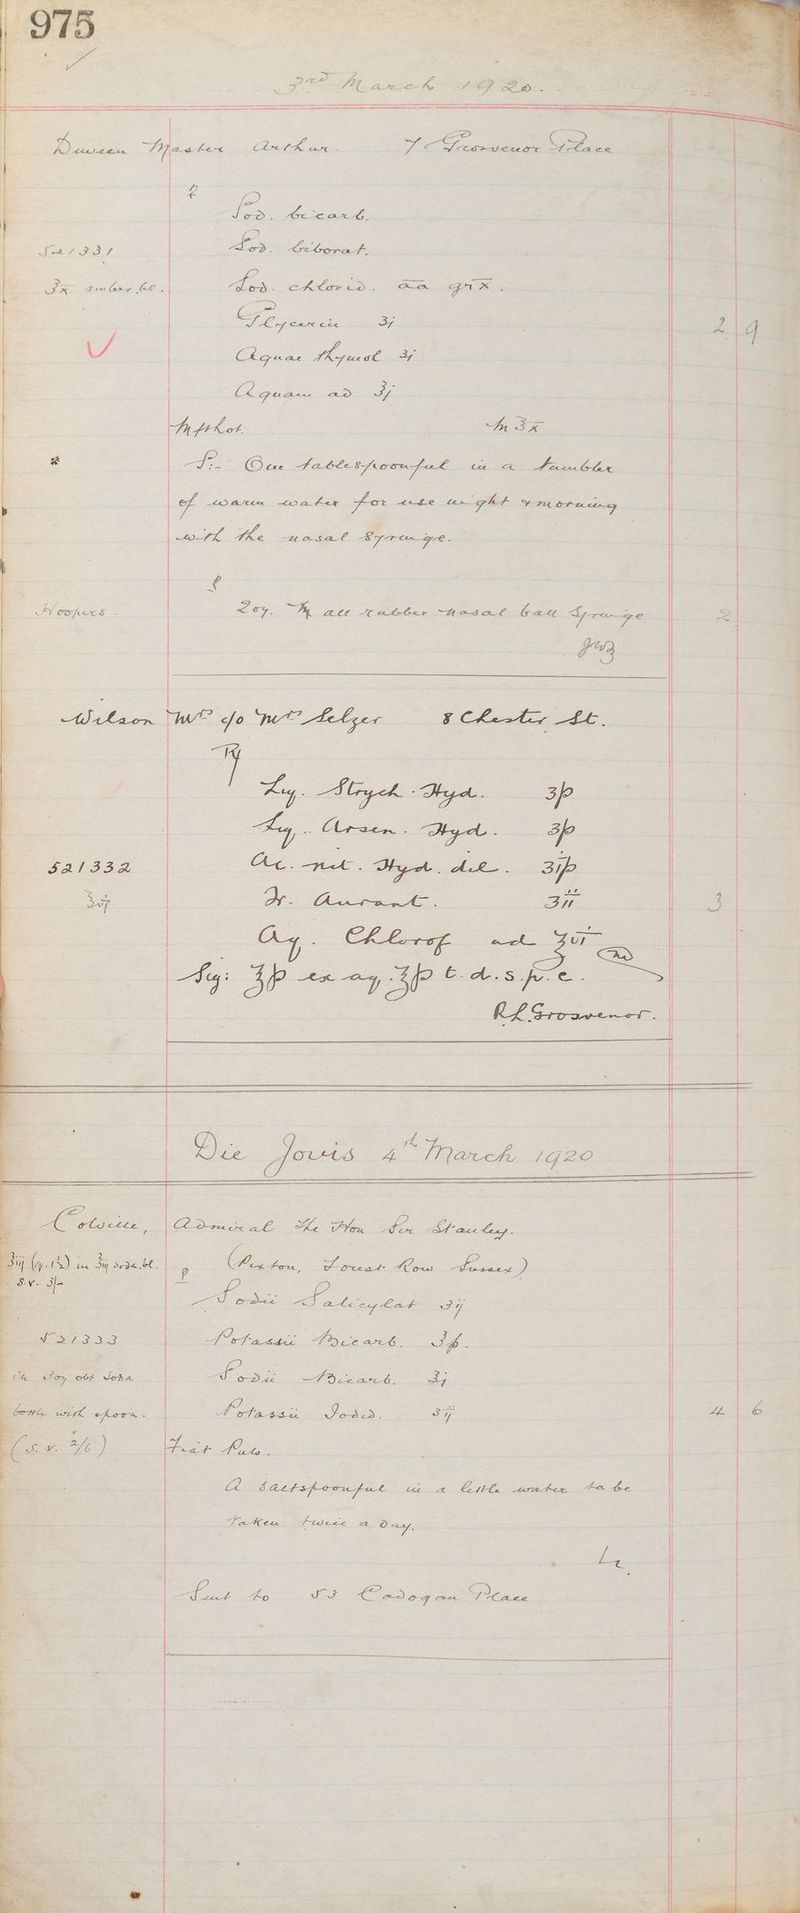 975
3rd March 1920.
Duveen Master Arthur. 7 Grosvenor Place
Sod. bicarb.
521331 Sod. biborat.
℥x amber bl. Sod. chlorid. āā gr x.
Glycerin ʒj 2 9
Aquae thymol ʒj
Aquam ad ℥j
M ft hot. M ℥x
S:- One tablespoonful in a tumbler
of warm water for use night & morning
with the nasal syringe.
Hoopers. 2oz. all rubber nasal ball syringe 2
Wilson Mrs c/o Mrs Selzer 8 Chester St.
Rx
Liq. Strych. Hyd. ʒß
Liq. Arsen. Hyd. ʒß
521332 Ac. nit. Hyd. dil. ʒiß
℥vj Tr. Aurant. ʒii 3
Aq. Chlorof ad ℥vi
Sig: ℥ß ex aq. ℥ß t.d.s. p.c.
R.L. Grosvenor.
Die Jovis 4th March 1920
Colville, Admiral The Hon Sir Stanley.
(Pixton, Forest Row Sussex)
s.v. 3/-
Sodii Salicylat ʒij
521333 Potassii Bicarb. ℥ß.
in 3oz obt soda Sodii Bicarb. ℥j
bottle with spoon. Potassii Iodid. ʒij 4 6
(s.v. 2/6) Fiat Pulv.
A saltspoonful in a little water to be
taken twice a day.
Sent to 53 Cadogan Place